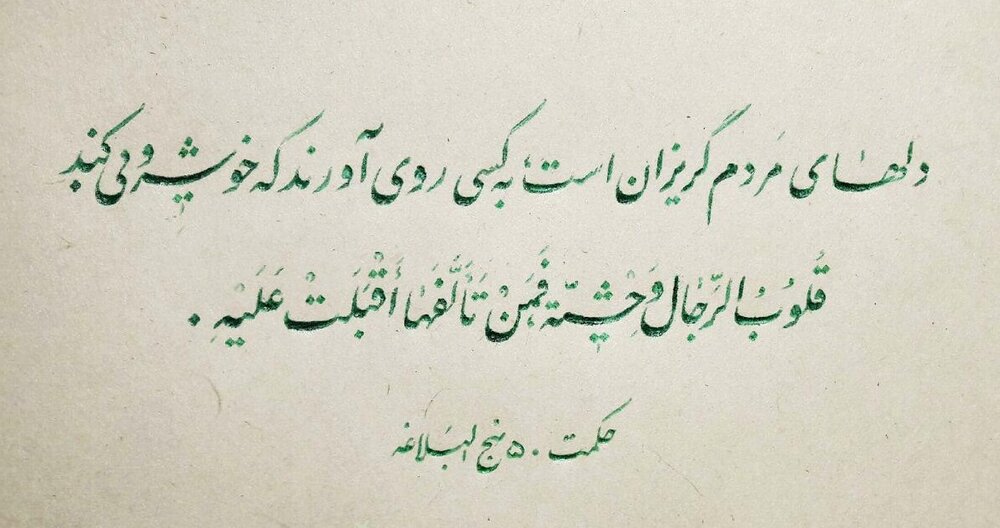 دلهای مَردم گریزان است؛ به کسی روی آورند که خوشرویی کند
قُلُوبُ الرِّجَالِ وَحْشِيَّة فَمَنْ تَأَلَّفَهَا أَقْبَلَتْ عَلَيْهِ .
حکمت ۵۰ نهج البَلاغه